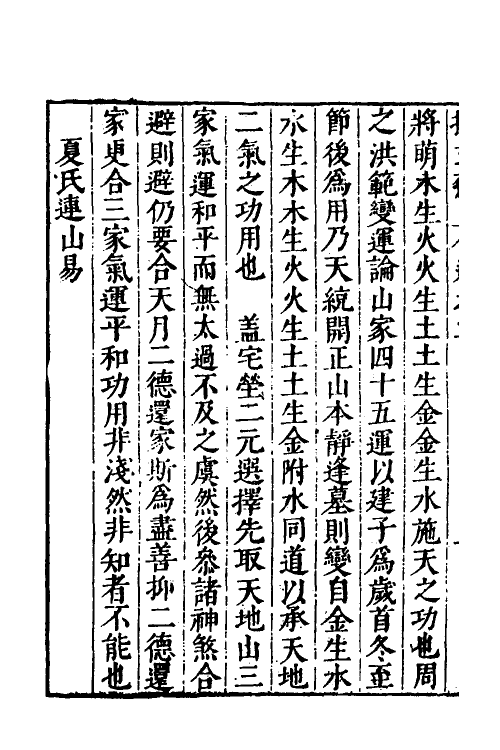 將萌木生火火生土土生金金生水施天之功也周
之洪範變運論山家四十五運以建子爲歲首冬至
節後爲用乃天統開正山本靜逢墓則變自金生水
水生木木生火火生土土生金附水同道以承天地
二氣之功用也　蓋宅塋二元選擇先取天地山三
家氣運和平而無太過不及之虞然後叅諸神煞合
避則避仍要合天月二德還家斯爲盡善抑二德還
家更合三家氣運平和功用非淺然非知者不能也
夏氏連山易